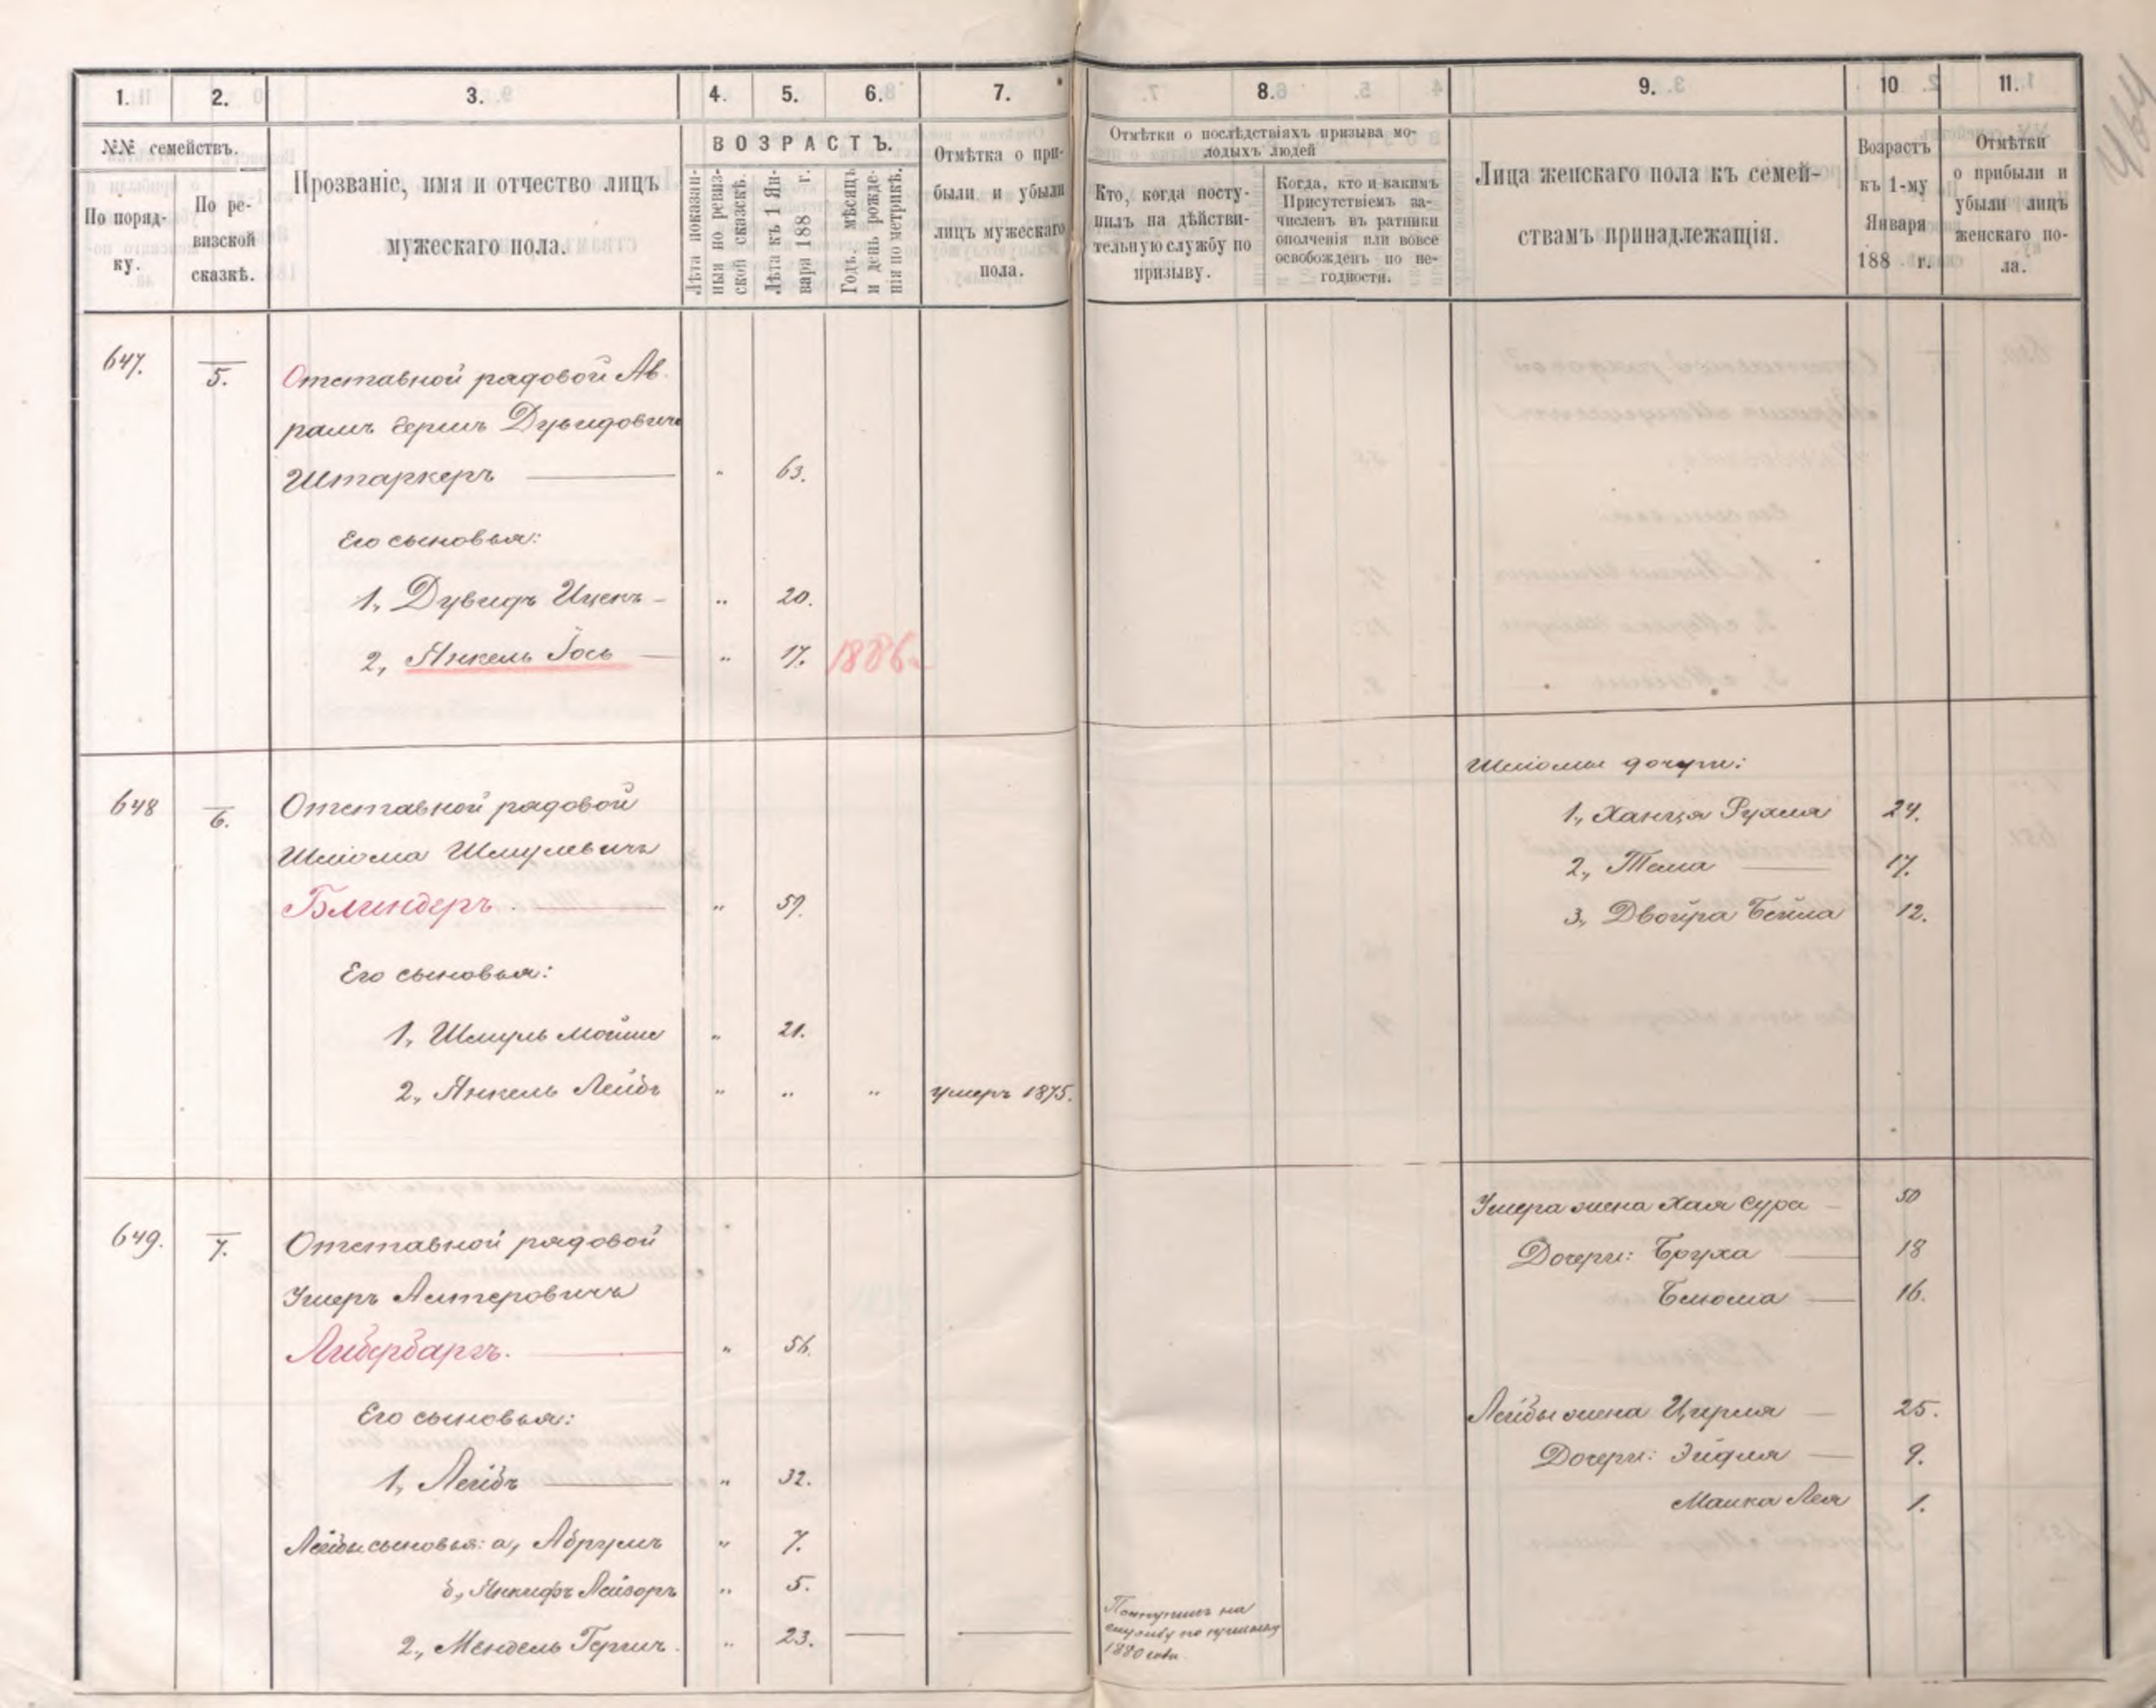 1. 2. 3. 4. 5. 6. 7. 8. 9. 10 11.
№№ семействъ.
По поряд-
ку.
По ре-
визской
сказкѣ.
Прозваніе, имя и отчество лицъ
мужескаго пола.
ВОЗРАСТЪ.
Лѣта показан-
ныя по ревиз-
ской сказкѣ.
Лѣта къ 1 Ян-
варя 188 г.
Годъ, мѣсяцъ
и день рожде-
нія по метрикѣ.
Отмѣтка о при-
были и убыли
лицъ мужескаго
пола.
Отмѣтки о послѣдствіяхъ призыва мо-
лодыхъ людей
Кто, когда посту-
пилъ на дѣйстви-
тельную службу по
призыву.
Когда, кто и какимъ
Присутствіемъ за-
численъ въ ратники
ополченія или вовсе
освобожденъ по не-
годности.
Лица женскаго пола къ семей-
ствамъ принадлежащія.
Возрастъ
къ 1-му
Января
188 г.
Отмѣтки
о прибыли и
убыли лицъ
женскаго по-
ла.
647. 5. Отставной рядовой Ав-
рамъ Гершъ Дувидовичъ
Штаркеръ „ 63.
Его сыновья:
1, Дувидъ Ицекъ „ 20.
2, Янкель Іось „ 17. 1886.
648 6. Отставной рядовой
Шліома Шмулевичъ
Блиндеръ „ 59.
Его сыновья:
1, Шмуль Мойше „ 21.
2, Янкель Лейбъ „ „ „ умеръ 1875.
Шліомы дочери:
1, Ханця Рухля 24.
2, Тема 17.
3, Двойра Бейла 12.
649. 7. Отставной рядовой
Ушеръ Алтеровичъ
Либербаргъ. „ 56.
Его сыновья:
1, Лейбъ „ 32.
Лейбы сыновья: а, Абрумъ „ 7.
б, Янкифъ Лейзоръ „ 5.
2, Мендель Гершъ „ 23.
Поступилъ на
службу по призыву
1880 года.
Ушера жена Хая Сура 50
Дочери: Бруха 18
Блюма 16.
Лейбы жена Цирля 25.
Дочери: Эйдля 9.
Малка Лея 1.